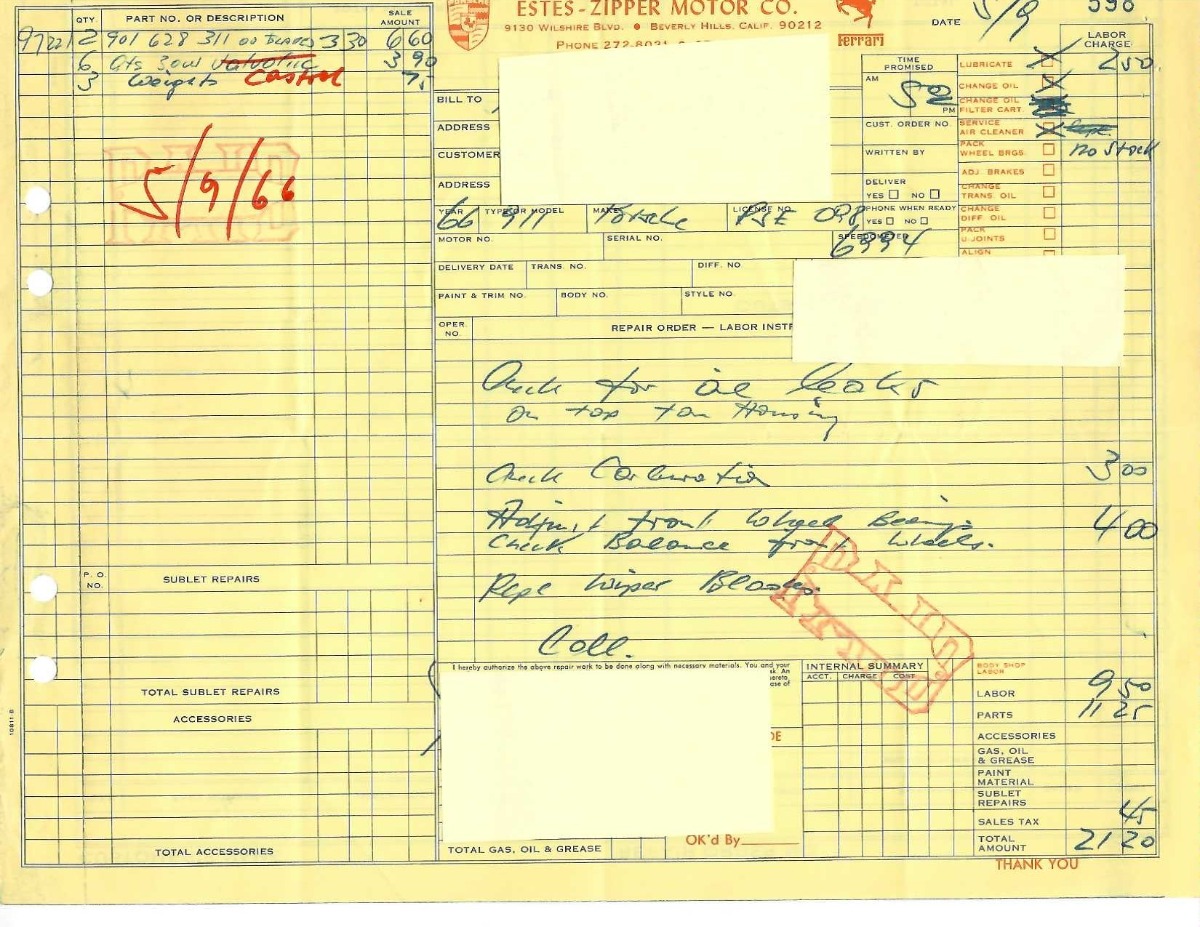 ESTES-ZIPPER MOTOR CO.
9130 WILSHIRE BLVD. • BEVERLY HILLS, CALIF. 90212
PHONE 272-8021
Ferrari
DATE 5/9
598
QTY PART NO. OR DESCRIPTION SALE AMOUNT
9722 2 901 628 311 00 Blades 3 30 6 60
6 Qts 30W Valvoline Castrol 3 90
3 Weights 75
5/9/66
PAID
BILL TO
ADDRESS
CUSTOMER
ADDRESS
TIME PROMISED
AM
5 00
PM
CUST. ORDER NO.
WRITTEN BY
DELIVER
YES NO
PHONE WHEN READY
YES NO
LABOR CHARGE
LUBRICATE 2 50
CHANGE OIL
CHANGE OIL FILTER CART
SERVICE AIR CLEANER
PACK WHEEL BRGS. no stock
ADJ. BRAKES
CHANGE TRANS. OIL
CHANGE DIFF. OIL
PACK U JOINTS
ALIGN
YEAR 66 TYPE OR MODEL 911 MAKE Porsche LICENSE NO. PSE 098
MOTOR NO. SERIAL NO. SPEEDOMETER 6994
DELIVERY DATE TRANS. NO. DIFF. NO.
PAINT & TRIM NO. BODY NO. STYLE NO.
OPER. NO. REPAIR ORDER — LABOR INST
Check for oil leaks
on top fan Housing
Check Carburation 3 00
Adjust front Wheel Bearings 4 00
Check Balance front Wheels.
Repl Wiper Blades
Call.
P.O. NO. SUBLET REPAIRS
TOTAL SUBLET REPAIRS
ACCESSORIES
TOTAL ACCESSORIES
10811-B
I hereby authorize the above repair work to be done along with necessary materials. You and your
TOTAL GAS, OIL & GREASE
OK'd By
INTERNAL SUMMARY
ACCT. CHARGE COST
PAID
BODY SHOP LABOR
LABOR 9 50
PARTS 11 25
ACCESSORIES
GAS, OIL & GREASE
PAINT MATERIAL
SUBLET REPAIRS
SALES TAX 45
TOTAL AMOUNT 21 20
THANK YOU